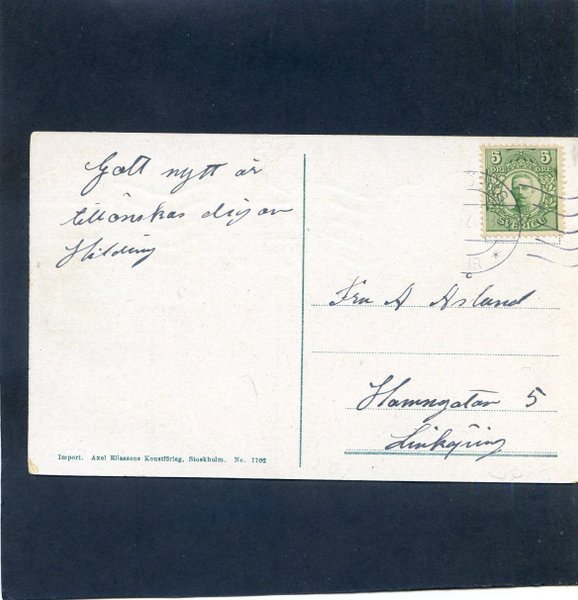 Gott nytt år
tillönskas dig av
Hilding
5 5
ÖRE ÖRE
SVERIGE
Fru A Åslund
Hamngatan 5
Linköping
Import. Axel Eliassons Konstförlag, Stockholm. No. 1102